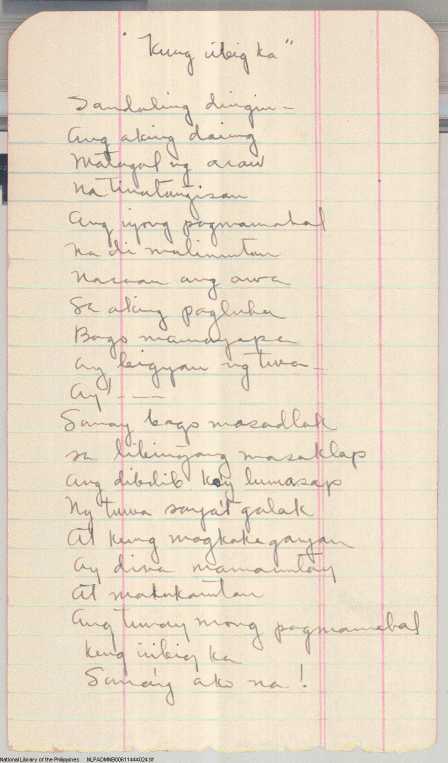 "Kung iibig ka"
Sandaling dingin –
Ang aking daing
Matagal ng araw
Na tinatangisan
Ang iyong pagmamahal
Na di malimutan
Nasaan ang awa
Sa aking pagluha
Bago mamayapa
Ay bigyan ng tuwa –
Ay! - - -
Sanay bago masadlak
sa libingang masaklap
Ang dibdib ko'y lumasap
Ng tuwa saya't galak
At kung magkakagayan
Ay diwa mamamatay
At makakamtan
Ang tunay mong pagmamahal
kung iibig ka
Sana'y ako na!
National Library of the Philippines NLPADMNB00611444024.tif